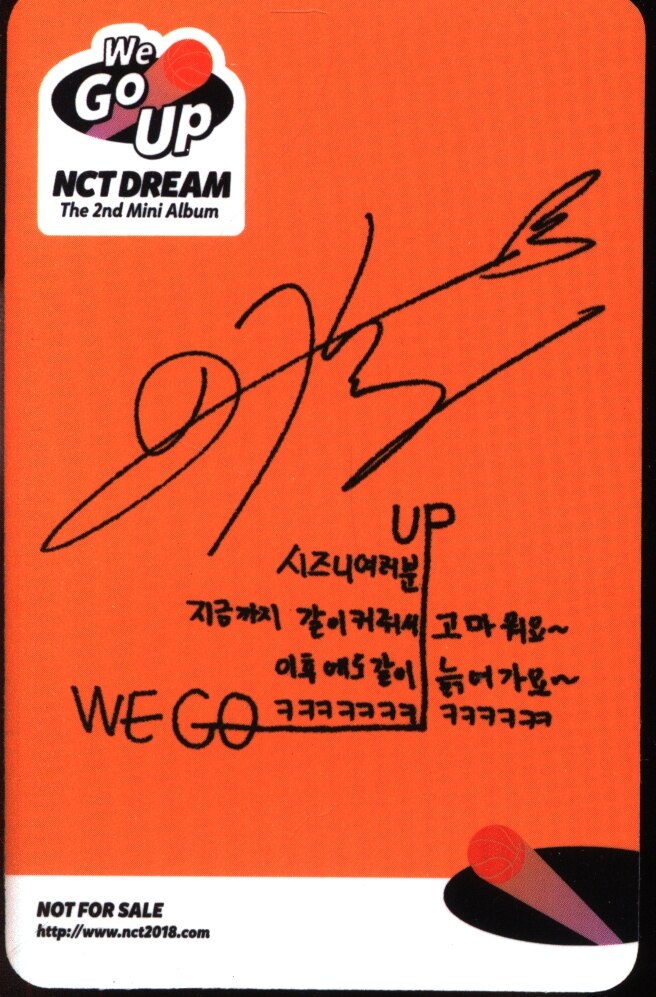 We
Go
Up
NCT DREAM
The 2nd Mini Album
UP
시즈니여러분
지금까지 같이커줘서 고마워요~
이후에도같이 늙어가요~
WE GO ㅋㅋㅋㅋㅋㅋㅋ ㅋㅋㅋㅋㅋㅋ
NOT FOR SALE
http://www.nct2018.com